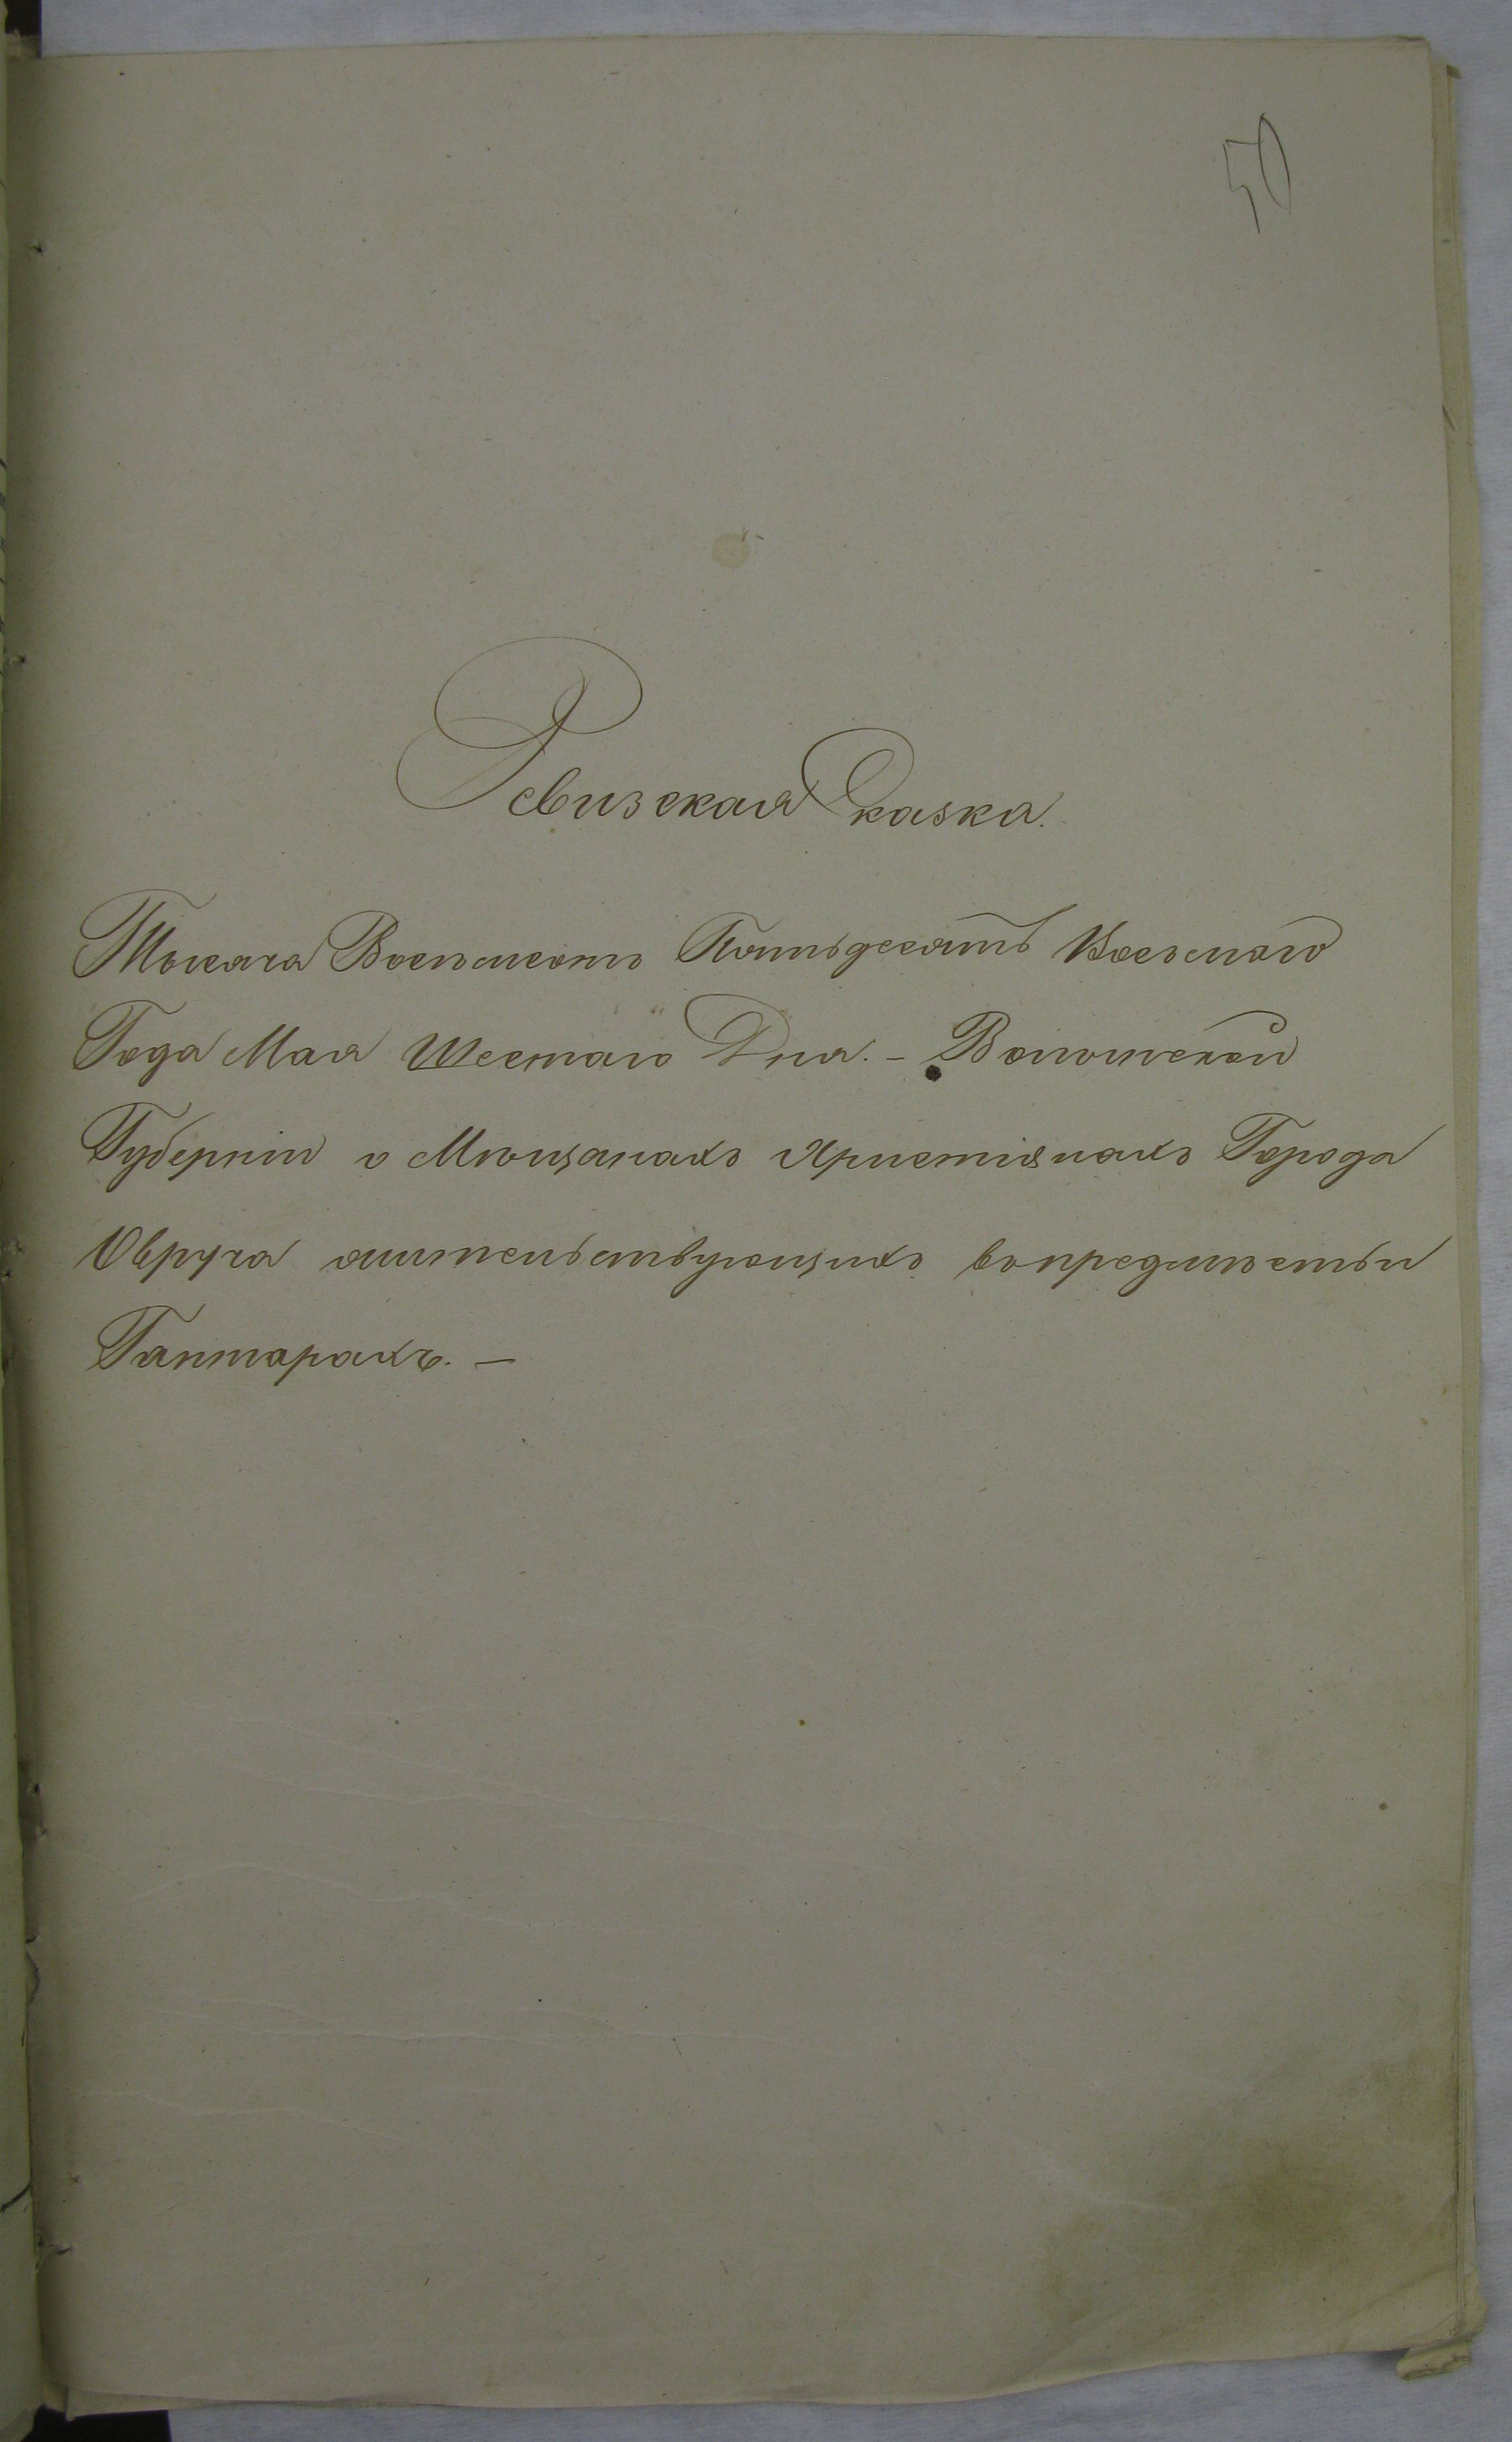 50
Ревизская Сказка.
Тысяча Восемьсотъ Пятьдесятъ Восьмаго
Года Мая Шестаго Дня. – Волынской
Губерніи о Мѣщанахъ Христіянахъ Города
Овруча жительствующихъ въ предмѣстьи
Гаптарахъ. –